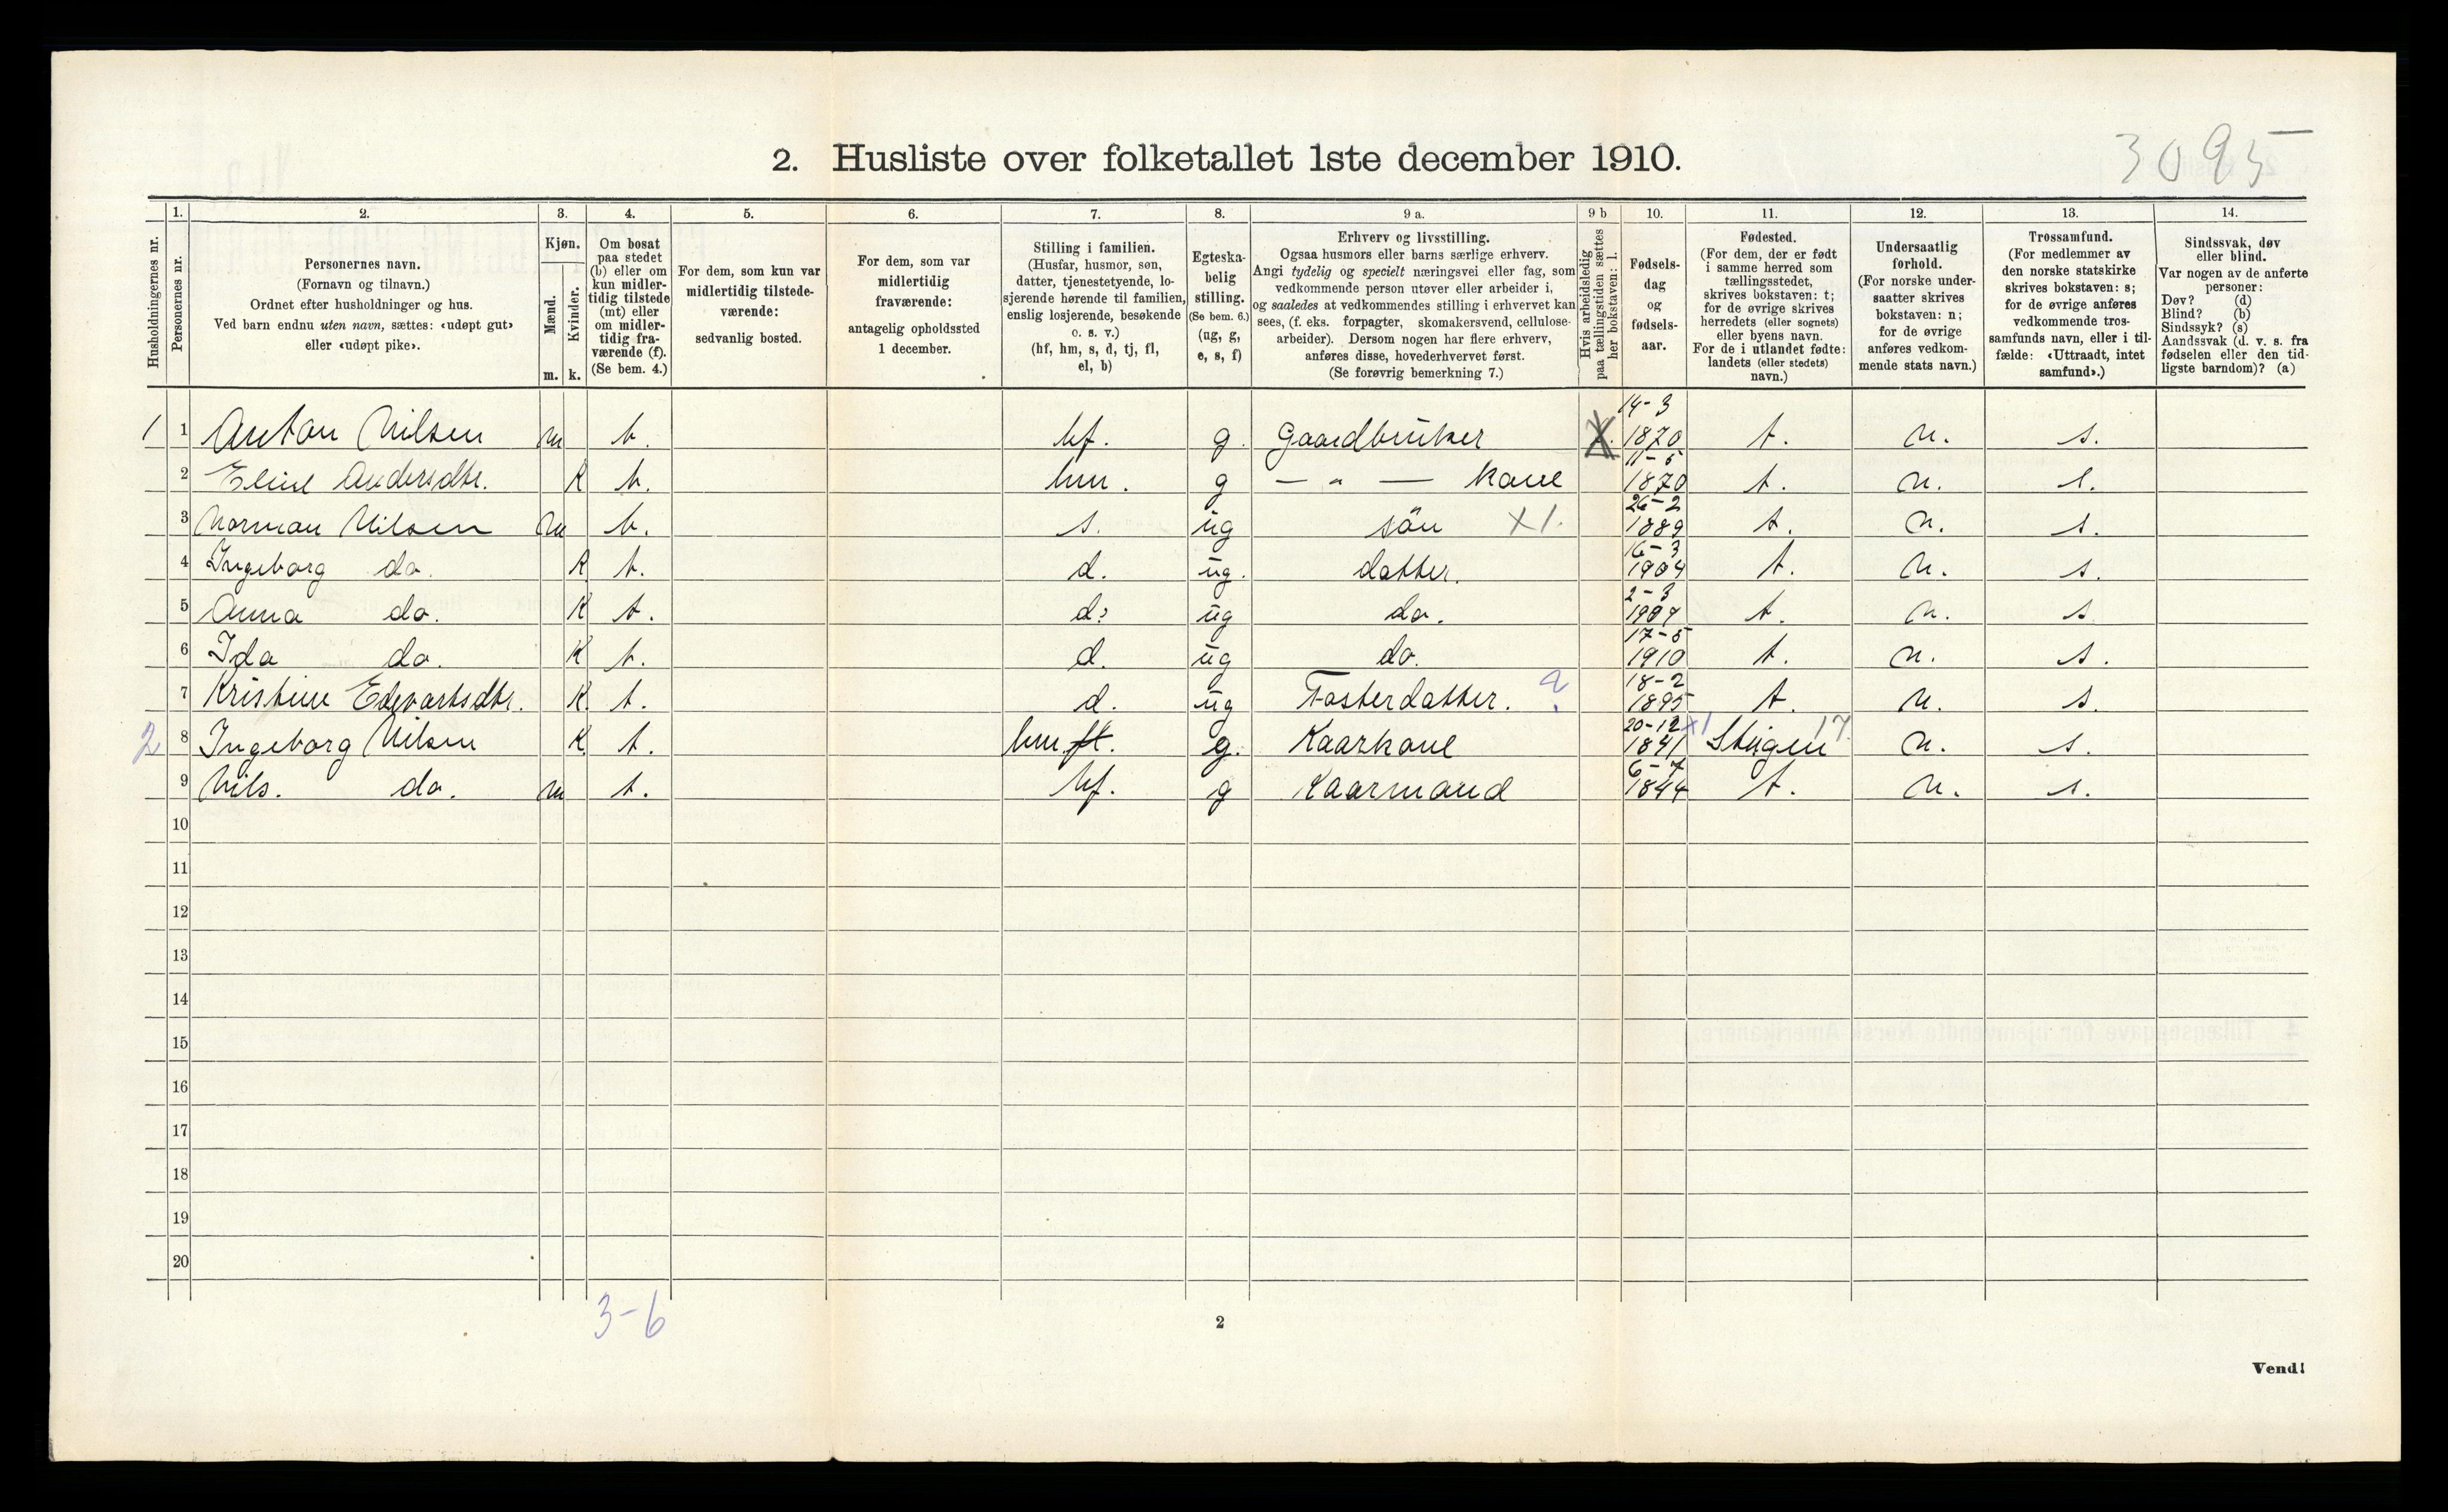 3095
2. Husliste over folketallet 1ste december 1910.
Husholdningernes nr.
1. Personernes nr.
2. Personernes navn. (Fornavn og tilnavn.) Ordnet efter husholdninger og hus. Ved barn endnu uten navn, sættes: «udøpt gut» eller «udøpt pike».
3. Kjøn. Mænd. m. Kvinder. k.
4. Om bosat paa stedet (b) eller om kun midlertidig tilstede (mt) eller om midlertidig fraværende (f). (Se bem. 4.)
5. For dem, som kun var midlertidig tilstedeværende: sedvanlig bosted.
6. For dem, som var midlertidig fraværende: antagelig opholdssted 1 december.
7. Stilling i familien. (Husfar, husmor, søn, datter, tjenestetyende, losjerende hørende til familien, enslig losjerende, besøkende o. s. v.) (hf, hm, s, d, tj, fl, el, b)
8. Egteskabelig stilling. (Se bem. 6.) (ug, g, e, s, f)
9 a. Erhverv og livsstilling. Ogsaa husmors eller barns særlige erhverv. Angi tydelig og specielt næringsvei eller fag, som vedkommende person utøver eller arbeider i, og saaledes at vedkommendes stilling i erhvervet kan sees, (f. eks. forpagter, skomakersvend, cellulosearbeider). Dersom nogen har flere erhverv, anføres disse, hovederhvervet først. (Se forøvrig bemerkning 7.)
9 b Hvis arbeidsledig paa tællingstiden sættes her bokstaven: l.
10. Fødselsdag og fødselsaar.
11. Fødested. (For dem, der er født i samme herred som tællingsstedet, skrives bokstaven: t; for de øvrige skrives herredets (eller sognets) eller byens navn. For de i utlandet fødte: landets (eller stedets) navn.)
12. Undersaatlig forhold. (For norske undersaatter skrives bokstaven: n; for de øvrige anføres vedkommende stats navn.)
13. Trossamfund. (For medlemmer av den norske statskirke skrives bokstaven: s; for de øvrige anføres vedkommende trossamfunds navn, eller i tilfælde: «Uttraadt, intet samfund».)
14. Sindssvak, døv eller blind. Var nogen av de anførte personer: Døv? (d) Blind? (b) Sindssyk? (s) Aandssvak (d. v. s. fra fødselen eller den tidligste barndom)? (a)
1 1 Anton Nilsen m b. hf. g. Gaardbruker 14-3 1870 t. n. s.
2 Eline Andersdtr. K b. hm. g — „ — Kone 11-5 1870 t. n. s.
3 Norman Nilsen m b. s. ug sön X1. 26-2 1889 t. n. s.
4 Ingeborg do. K t. d. ug. datter. 16-3 1904 t. n. s.
5 Anna do. K t. d. ug do. 2-3 1907 t. n. s
6 Ida do. K t. d. ug do. 17-5 1910 t. n. s.
7 Kristine Edevartsdtr. K. t. d. ug Fosterdatter. ? 18-2 1895 t. n. s.
2 8 Ingeborg Nilsen K. t. hm g. Kaarkone 20-12 1841 X1 Steigen 17 n. s.
9 Nils. do. m t. hf. g Kaarmand 6-7 1844 t. n. s.
10
11
12
13
14
15
16
17
18
19
20
3-6
2
Vend!